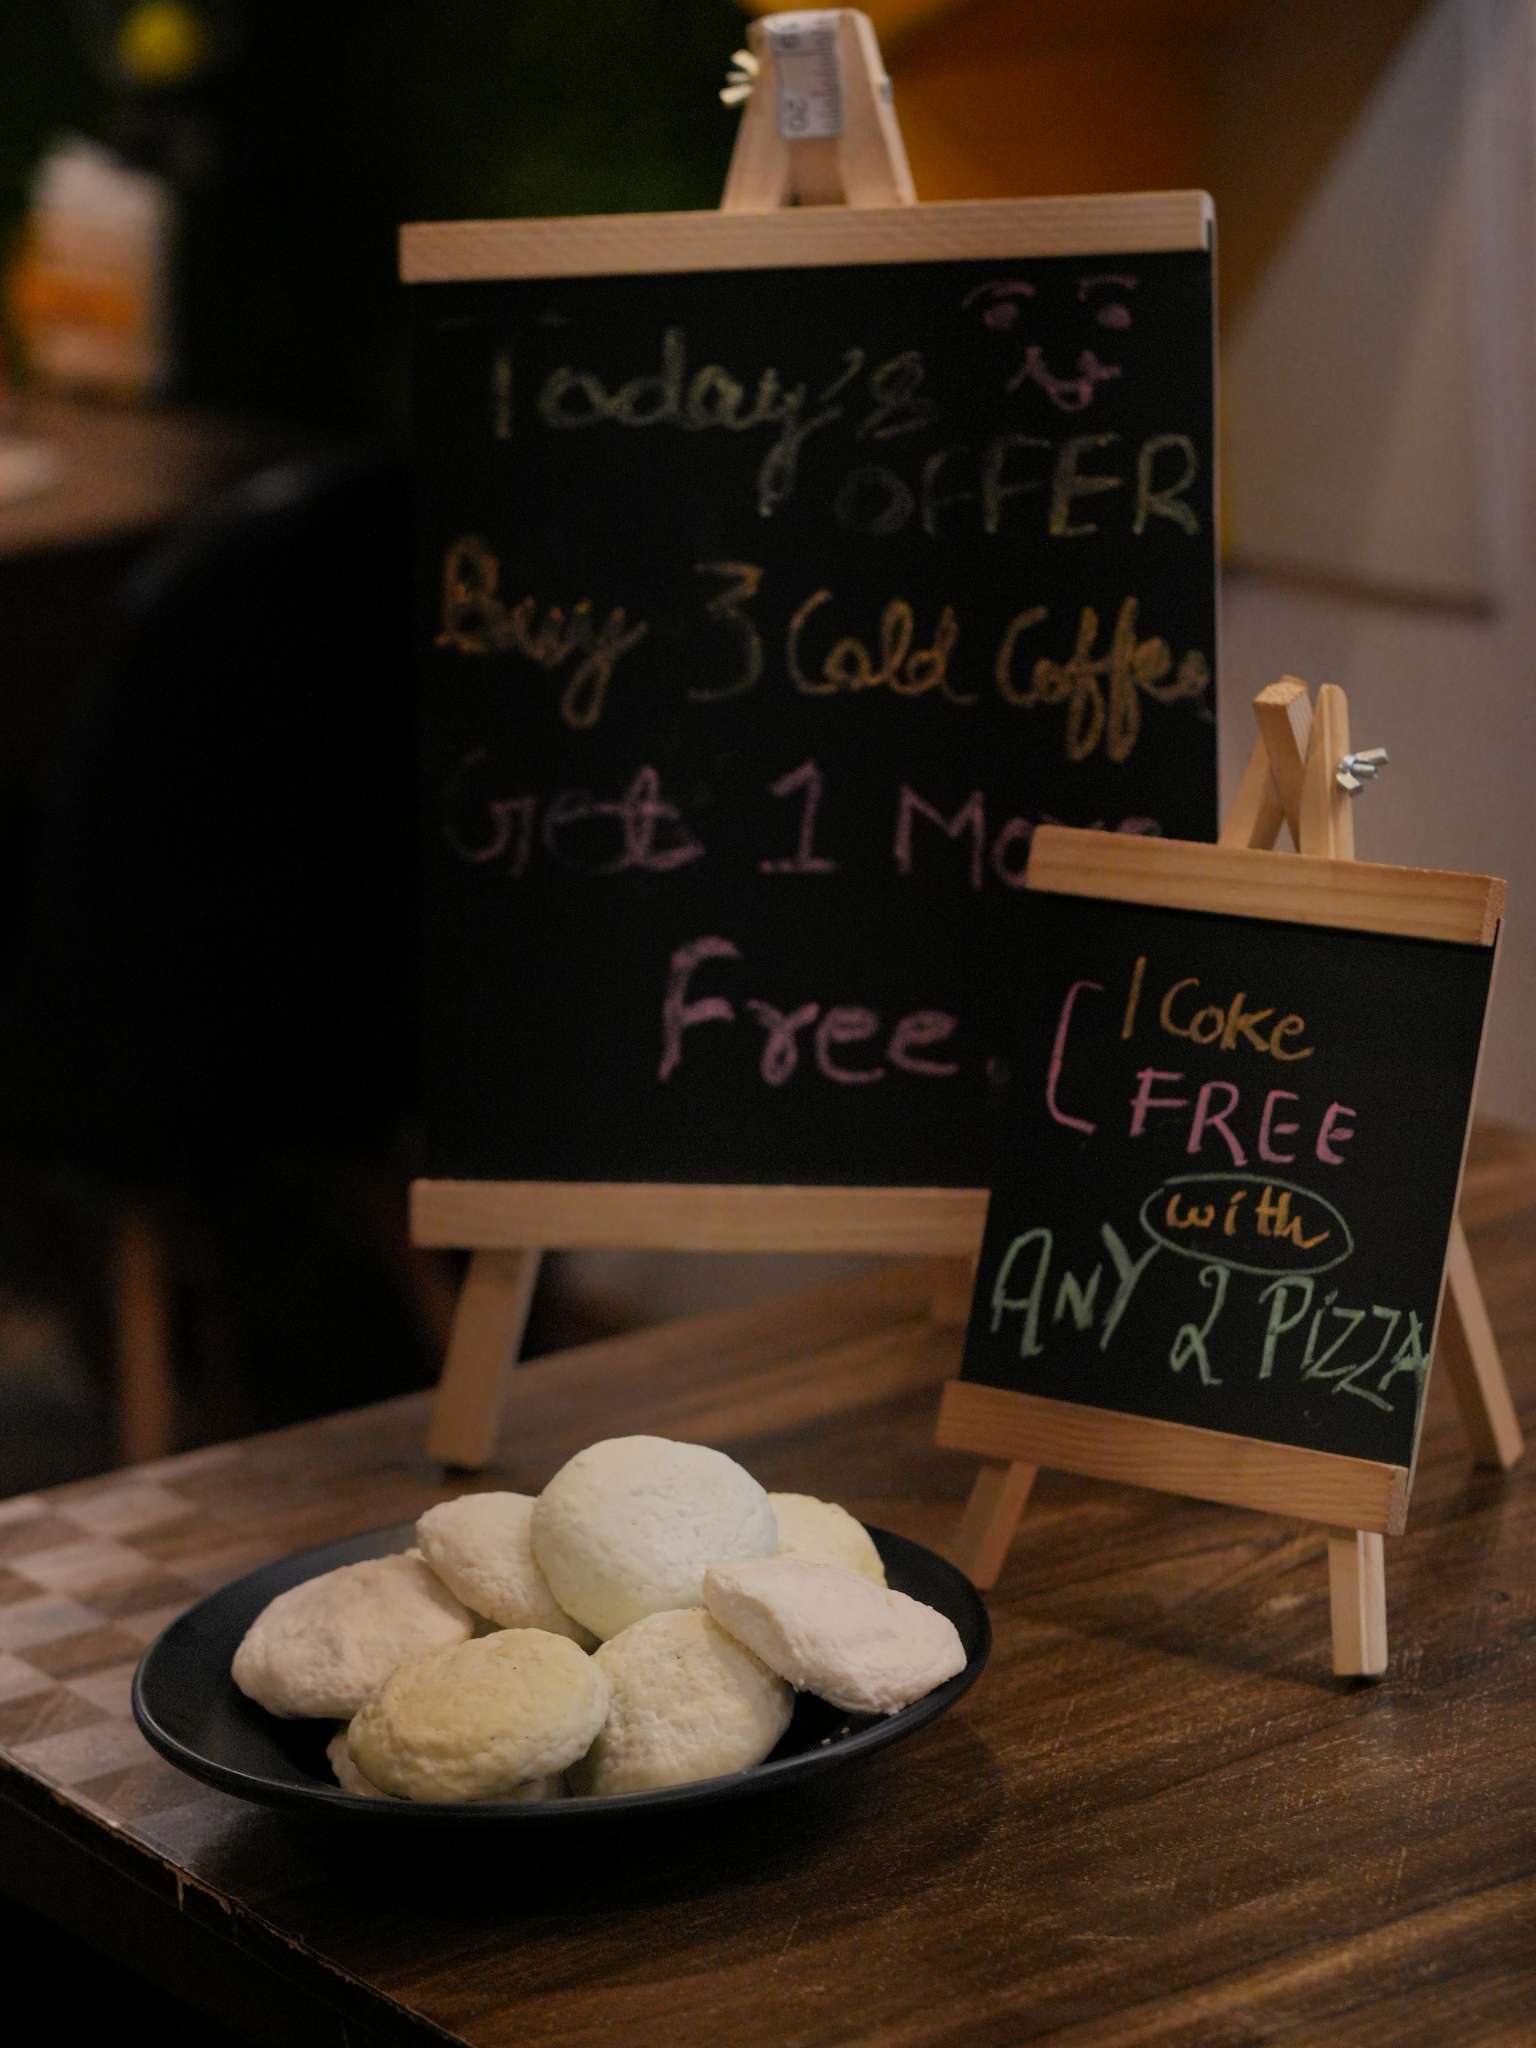 Today's
OFFER
Buy 3 Cold Coffee
Get 1 More
Free.
1 Coke
FREE
with
ANY 2 PIZZA
20